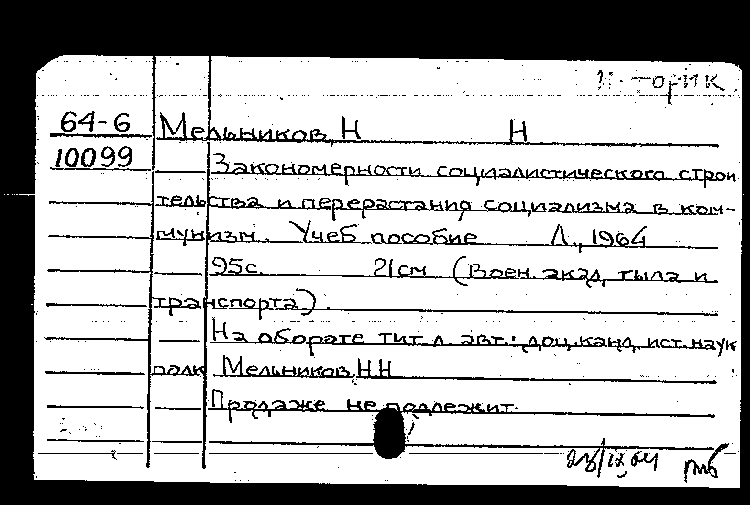 64-6 Мельников, Н Н
10099 Закономерности социалистического строи
тельства и перерастания социализма в ком-
мунизм. Учеб пособие Л., 1964
95с. 21см (Воен. акад, тыла и
транспорта).
На обороте тит л. авт.: доц. канд, ист. наук
полк Мельников, Н Н
Продаже не подлежит.